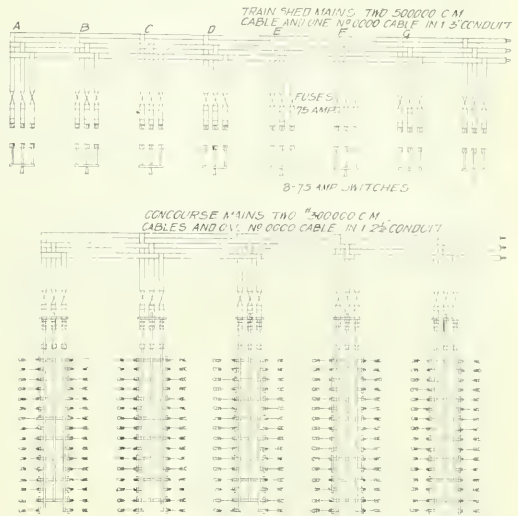 TRAIN SHED MAINS TWO 500000 C M
CABLE AND ONE Nº 0000 CABLE IN 1 3" CONDUIT
A B C D E F G
FUSES
75 AMPS
8-75 AMP SWITCHES
CONCOURSE MAINS TWO "300000 C M
CABLES AND Nº 0000 CABLE IN 1 2½ CONDUIT